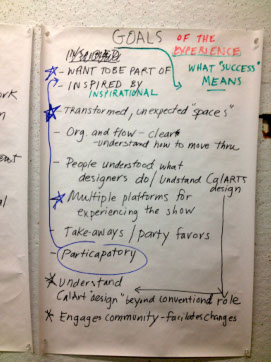 GOALS OF THE EXPERIENCE
WHAT "SUCCESS" MEANS
- WANT TO BE PART OF
- INSPIRED BY INSPIRATIONAL
- Transformed, unexpected "spaces"
- Org. and flow - clear
- understand how to move thru
- People understood what
designers do / Undstand CalARTS
design
* Multiple platforms for
experiencing the show
- Take-aways / party favors
- Particapatory
* Understand
CalArt "design" beyond conventional role
* Engages community - facilitates changes